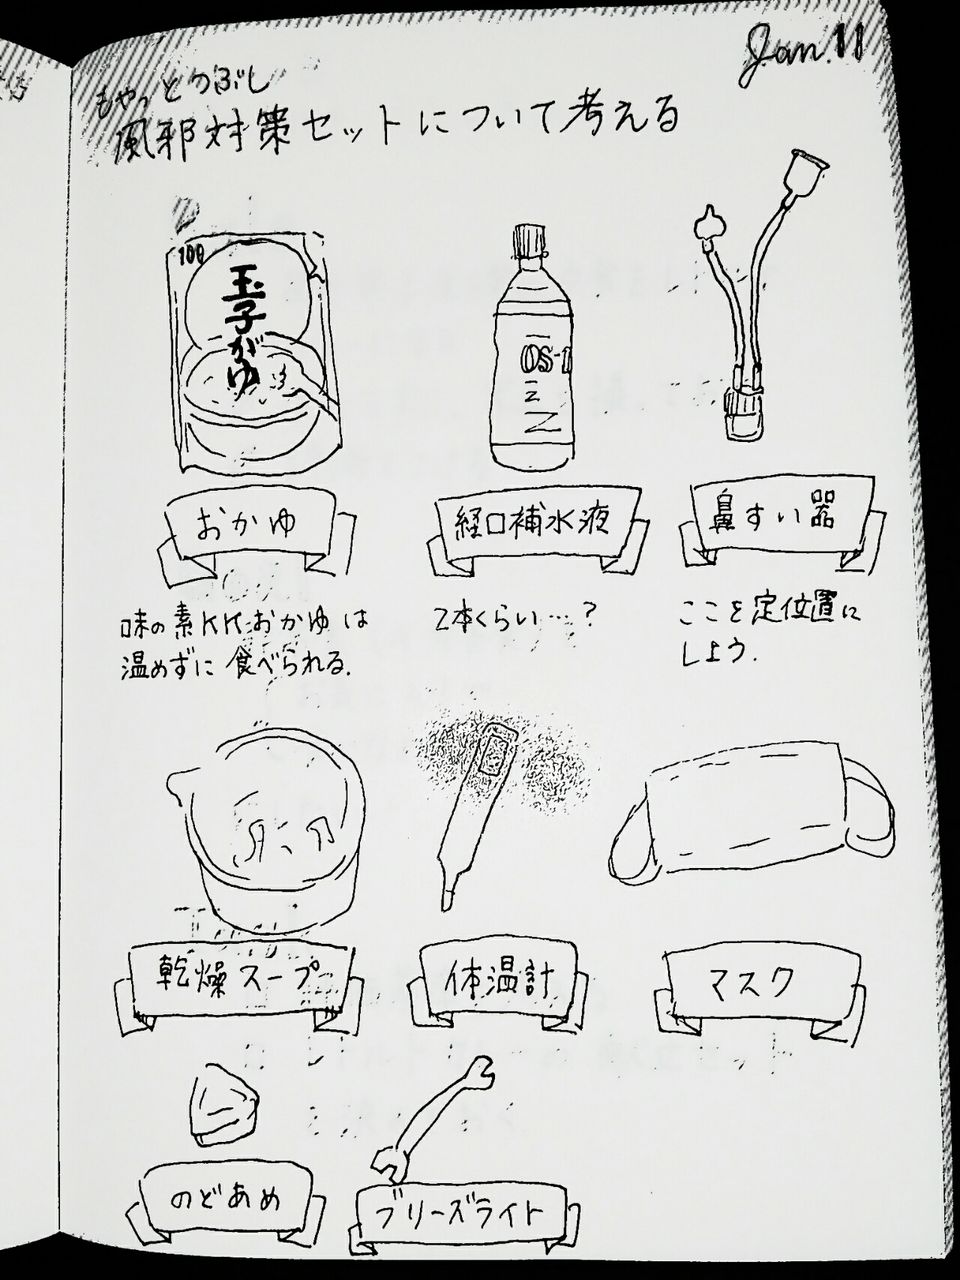 Jan. 11
もやっとつぶし
風邪対策セットについて考える
100
玉子がゆ
OS-1
おかゆ
経口補水液
鼻すい器
味の素KKおかゆは
温めずに食べられる.
2本くらい…?
ここを定位置に
しよう.
乾燥スープ
体温計
マスク
のどあめ
ブリーズライト